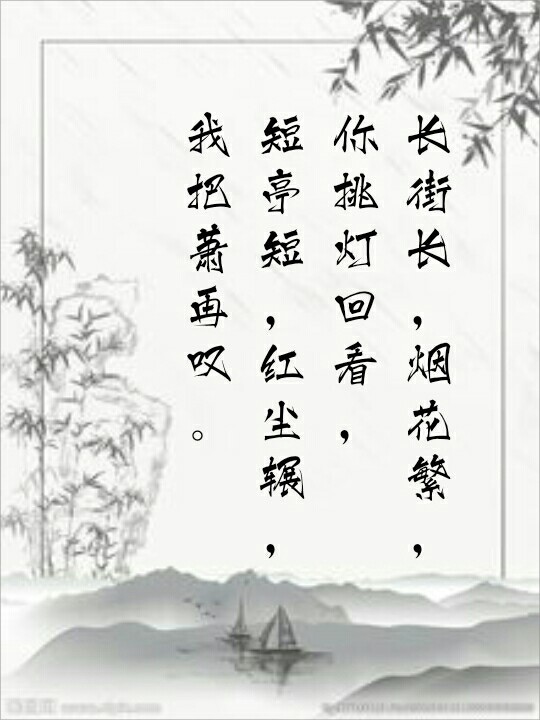 长街长，烟花繁，
你挑灯回看，
短亭短，红尘辗，
我把萧再叹。